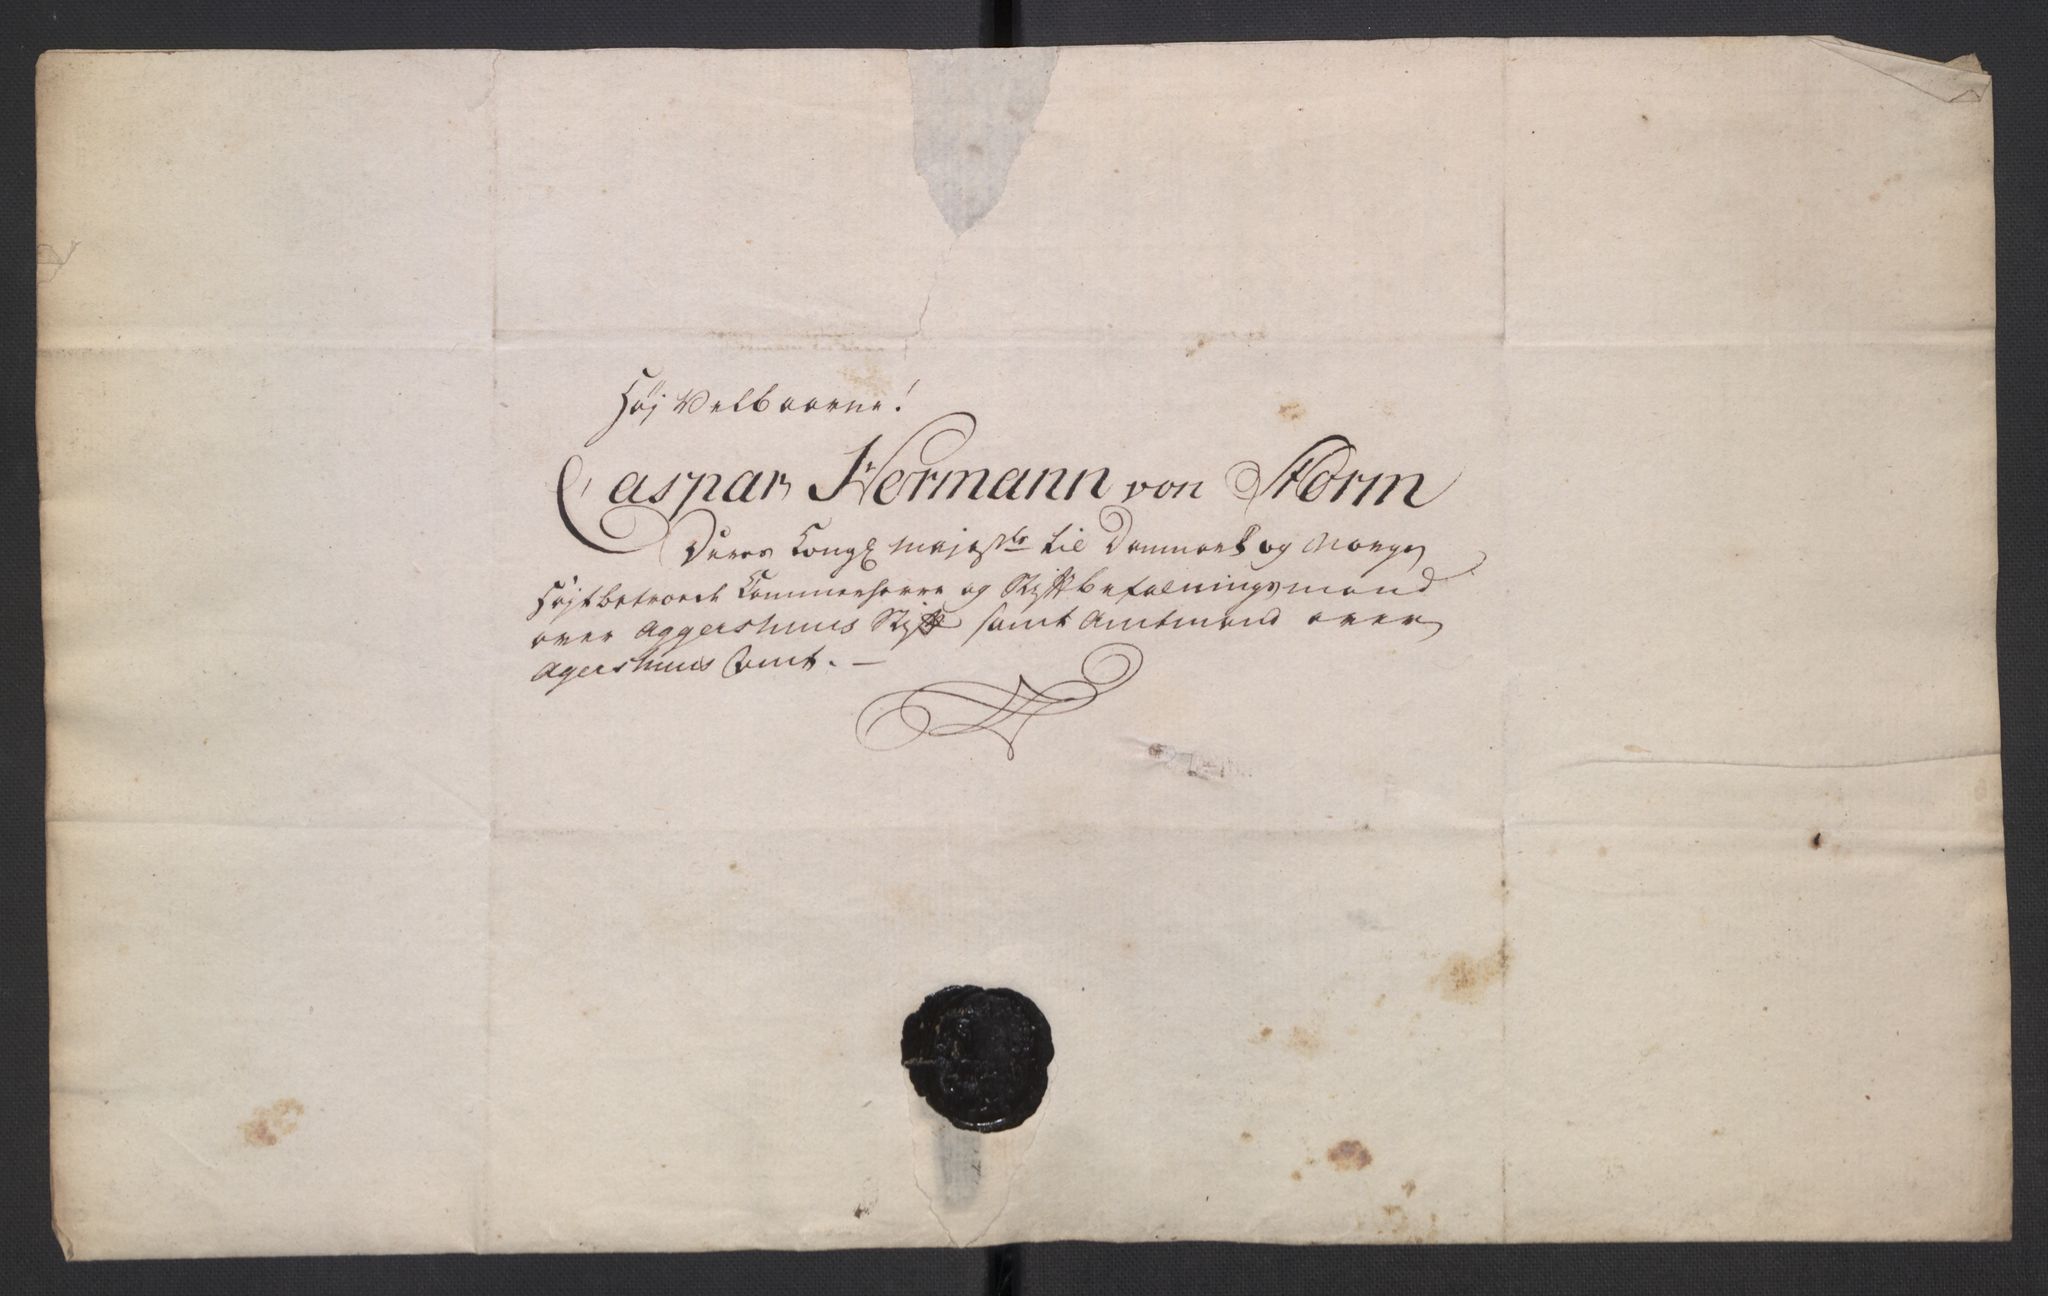 Høj Velbaarne!
Caspar Hermann von Storm
Deres Kongl Majestts til Danmark og Norge
Højtbetroede Kammerherre og Stiftbefalningsmand
over Aggershuus Stift samt Amtmand over
Agershuus Amt. —